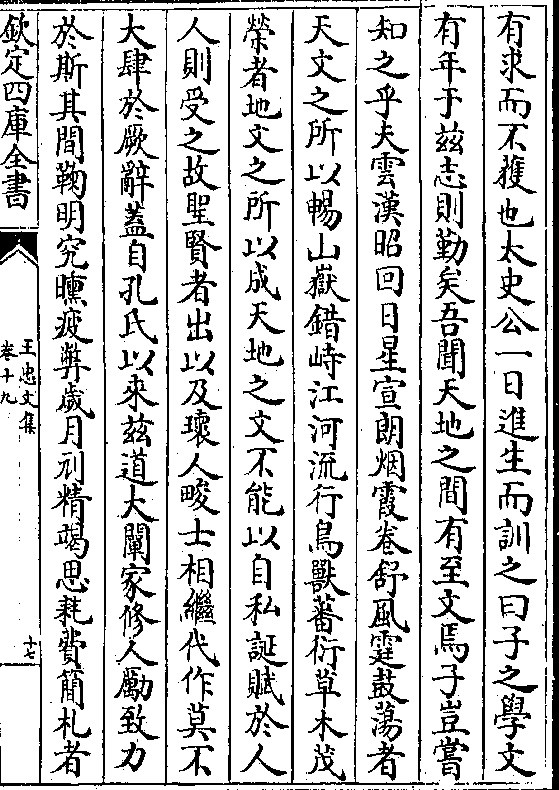 有求而不獲也太史公一日進生而訓之曰子之學文
有年于兹志則勤矣吾聞天地之間有至文焉子豈嘗
知之乎夫雲漢昭回日星宣朗烟霞卷舒風霆鼓蕩者
天文之所以暢山嶽錯峙江河流行鳥獸蕃衍草木茂
榮者地文之所以成天地之文不能以自私誕賦於人
人則受之故聖賢者出以及瓌人畯士相繼代作莫不
大肆於厥辭蓋自孔氏以來兹道大闡家修人勵致力
於斯其間鞠明究曛疲弊歲月刓精竭思耗費簡札者
欽定四庫全書
王忠文集
卷十九
十七